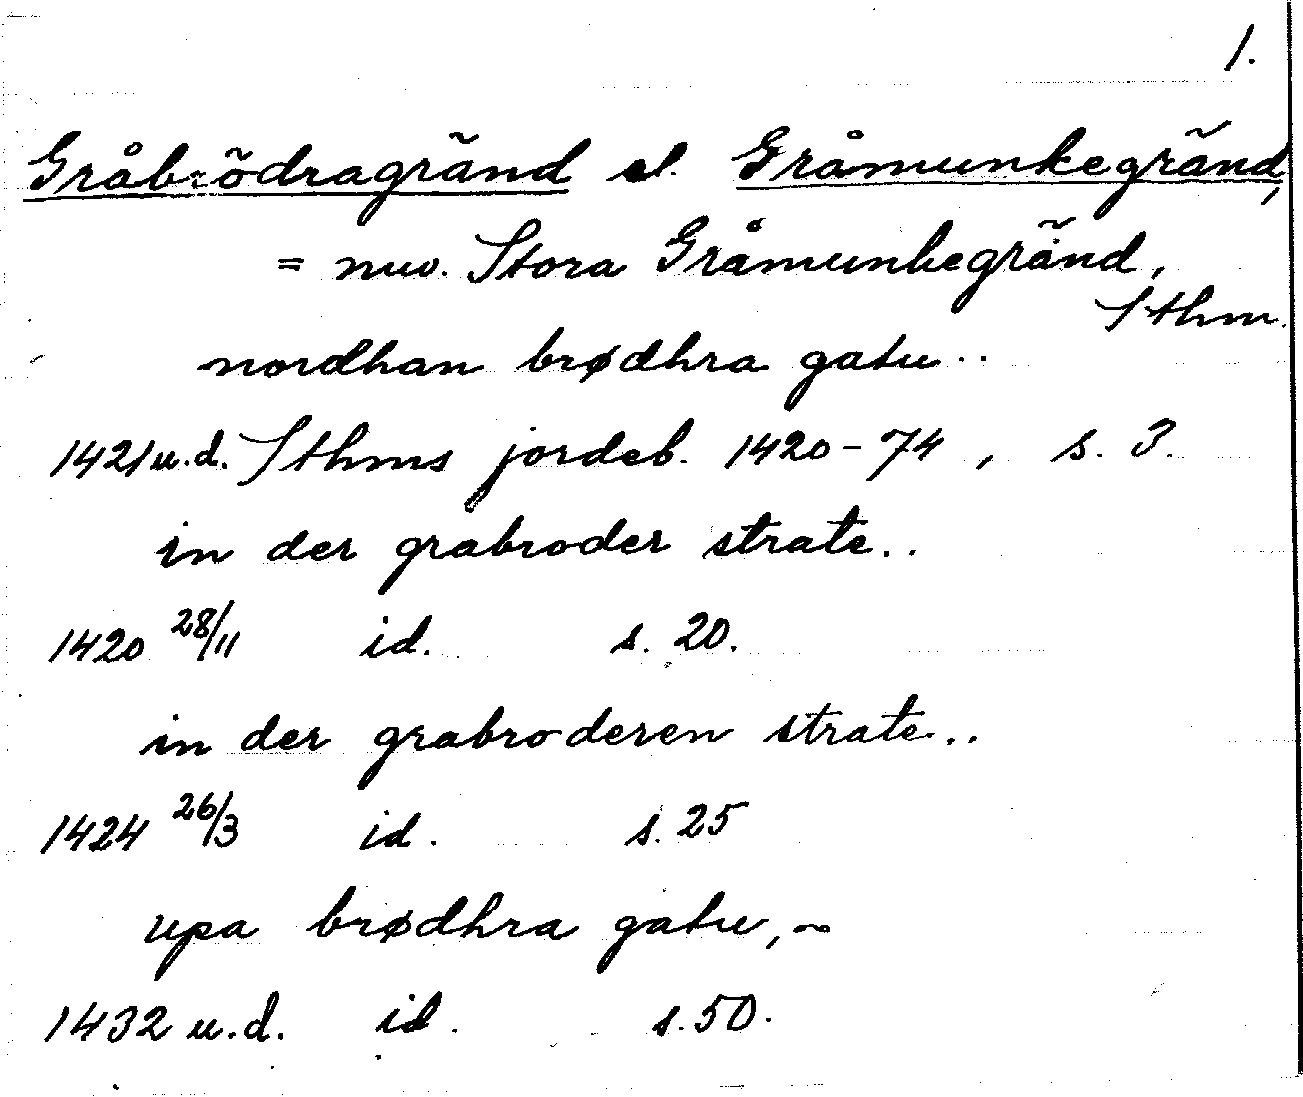 1.
Gråbrödragränd el. Gråmunkegränd,
= nuv. Stora Gråmunkegränd,
Sthm.
nordhan brødhra gatu..
1421 u.d. Sthms jordeb. 1420-74, s. 3.
in der grabroder strate..
1420 28/11 id. s. 20.
in der grabroderen strate...
1424 26/3 id. s. 25
upa brødhra gatu, ~
1432 u.d. id. s. 50.